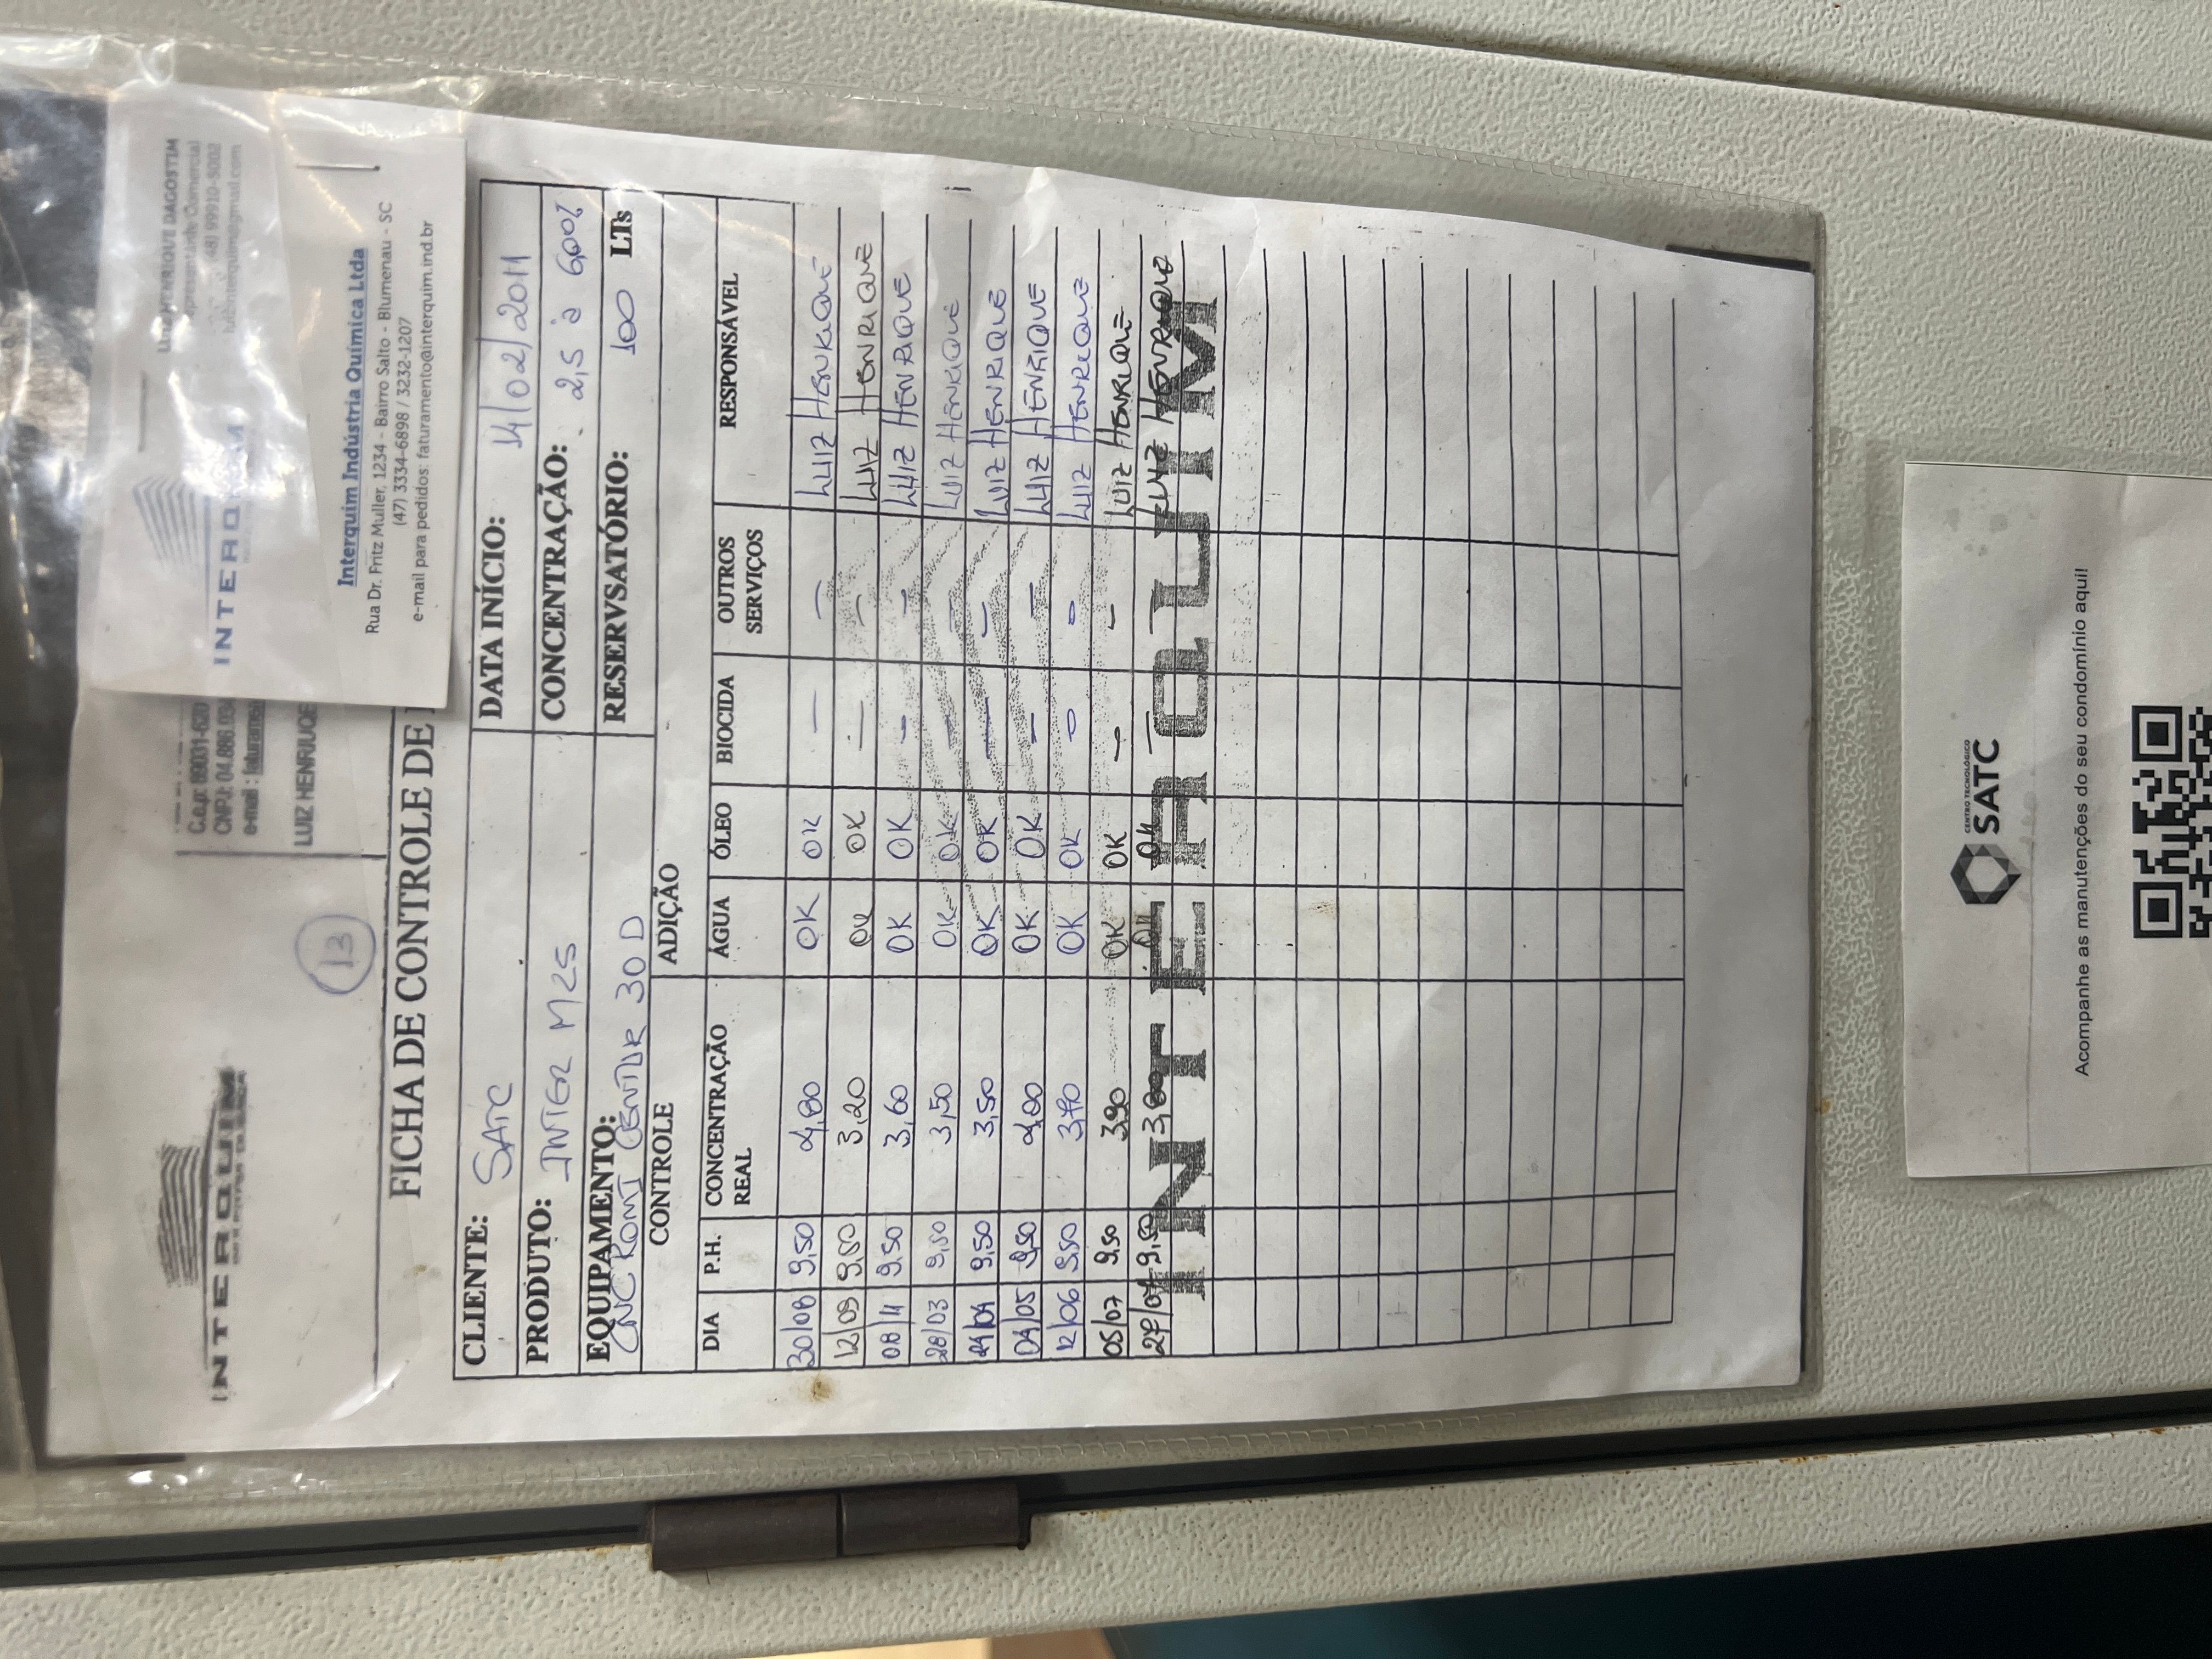 INTERQUIM
INDÚSTRIA QUÍMICA
13
C.e.p: 89031-620
CNPJ: 04.886.934
e-mail : faturame
LUIZ HENRIUQE
INTERQUIM
LUIZ HENRIQUE DAGOSTIM
Representante Comercial
(48) 99910-5002
luizinterquim@gmail.com
Interquim Indústria Química Ltda
Rua Dr. Fritz Muller, 1234 - Bairro Salto - Blumenau - SC
(47) 3334-6898 / 3232-1207
e-mail para pedidos: faturamento@interquim.ind.br
FICHA DE CONTROLE DE
CLIENTE: SATC DATA INÍCIO: 14/02/2011
PRODUTO: INTER M25 CONCENTRAÇÃO: 2,5 à 6,00%
EQUIPAMENTO: CNC ROMI CENTUR 30 D RESERVSATÓRIO: 100 LTs
CONTROLE ADIÇÃO
DIA P.H. CONCENTRAÇÃO REAL ÁGUA ÓLEO BIOCIDA OUTROS SERVIÇOS RESPONSÁVEL
30/08 9,50 4,80 OK OK — — LUIZ HENRIQUE
12/09 9,50 3,20 OK OK — — LUIZ HENRIQUE
08/11 9,50 3,60 OK OK — — LUIZ HENRIQUE
28/03 9,50 3,50 OK OK — — LUIZ HENRIQUE
9,50 3,50 OK OK — — LUIZ HENRIQUE
04/05 9,50 4,00 OK OK — — LUIZ HENRIQUE
12/06 9,50 3,70 OK OK — — LUIZ HENRIQUE
05/07 9,50 3,90 OK OK — — LUIZ HENRIQUE
27/07 9,50 3,80 OK OK — — LUIZ HENRIQUE
INTERQUIM
CENTRO TECNOLÓGICO
SATC
Acompanhe as manutenções do seu condomínio aqui!